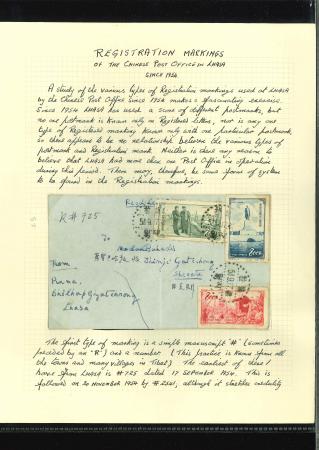 REGISTRATION MARKINGS
OF THE CHINESE POST OFFICE IN LHASA
SINCE 1954
A study of the various types of Registration markings used at LHASA
by the Chinese Post Office since 1954 makes a fascinating exercise.
Since 1954 LHASA has used a score of different postmarks, but
no one postmark is known only on Registered letters, nor is any one
type of Registered marking known only with one particular postmark,
so there appears to be no relationship between the various types of
postmark and Registration mark. Neither is there any reason to
believe that LHASA had more than one Post Office in operation
during this period. There may, therefore, be some form of system
to be found in the Registration markings.
R# 725
To
From
Lhasa
The first type of marking is a simple manuscript "#" (sometimes
preceded by an "R") and a number. (This practice is known from all
the towns and many villages in Tibet) The earliest of these I
have from LHASA is # 725 dated 17 SEPTEMBER 1954. This is
followed on 20 NOVEMBER 1954 by # 2561, although it stretches credulity